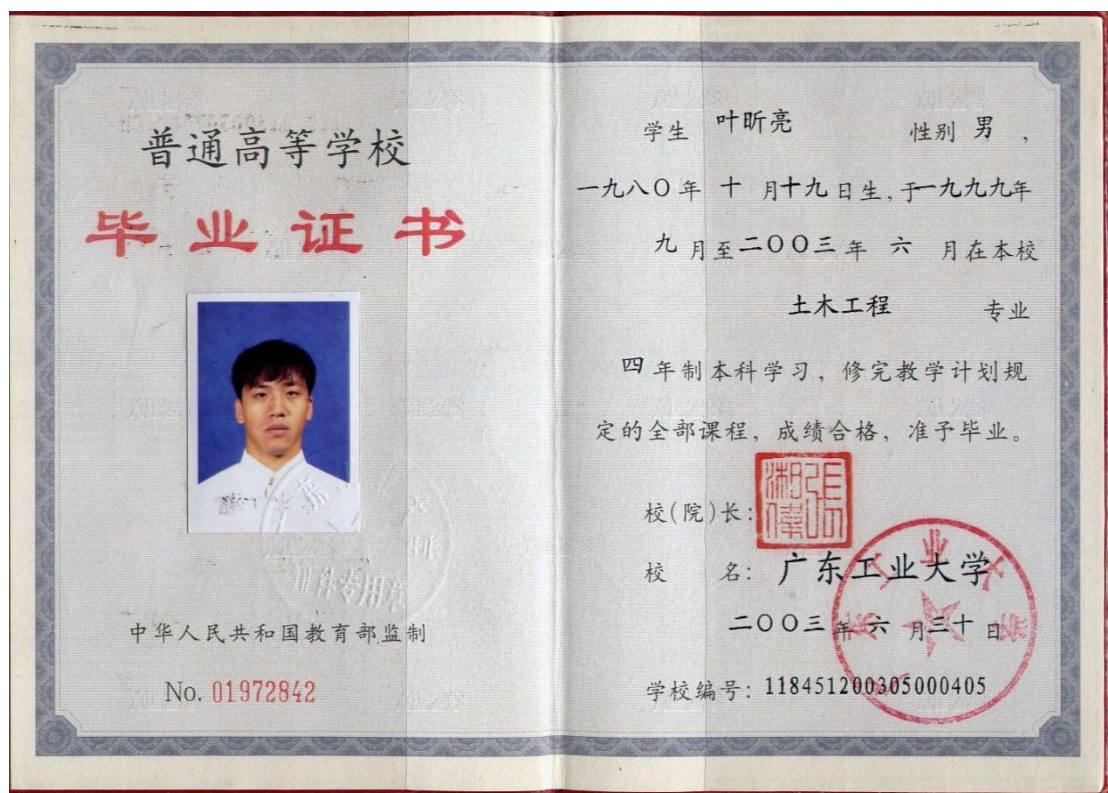 普通高等学校
毕业证书
中华人民共和国教育部监制
No. 01972842
学生 叶昕亮 性别 男，
一九八〇年 十 月十九日生，于一九九九年
九月至二〇〇三年 六 月在本校
土木工程 专业
四年制本科学习，修完教学计划规
定的全部课程，成绩合格，准予毕业。
校(院)长：
张湘伟
校 名：广东工业大学
二〇〇三年六月三十日
学校编号：118451200305000405